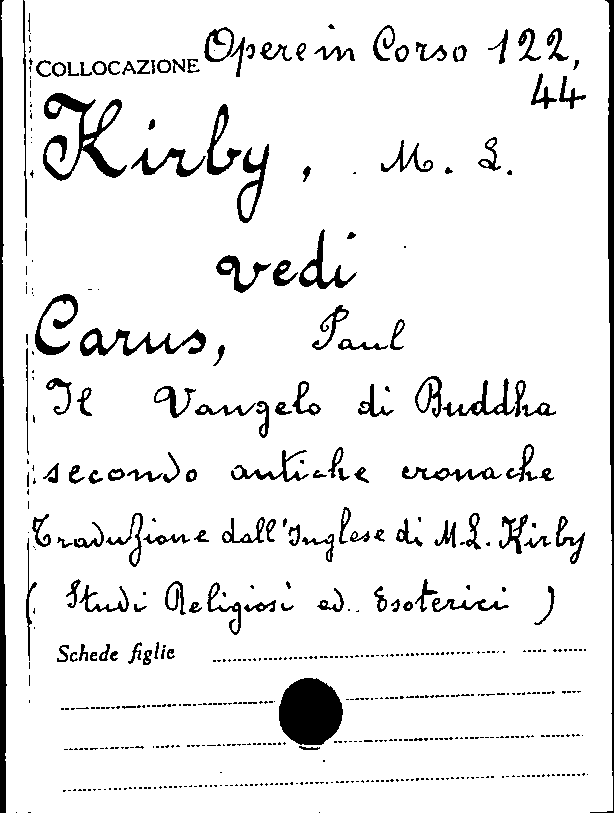 COLLOCAZIONE Opere in Corso 122,
44
Kirby, M. L.
vedi
Carus, Paul
Il Vangelo di Buddha
secondo antiche cronache
Traduzione dall'Inglese di M.L. Kirby
( Studi Religiosi ed. Esoterici )
Schede figlie